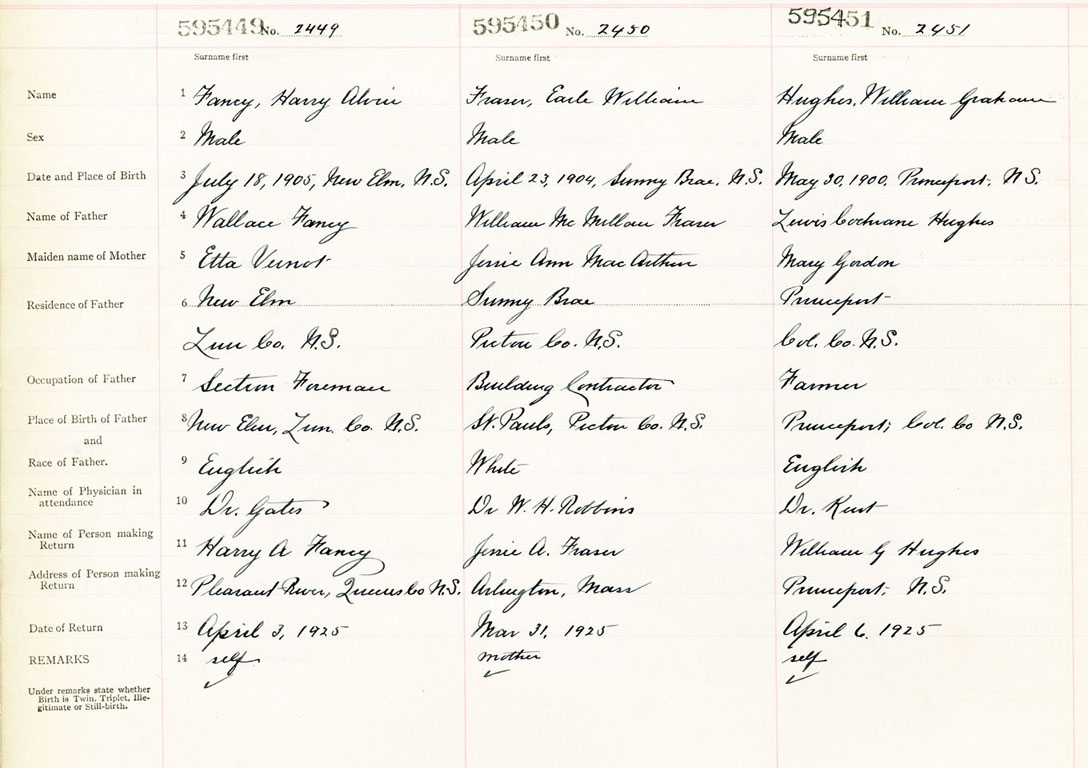 595449 No. 2449 595450 No. 2450 595451 No. 2451
Surname first Surname first Surname first
Name 1 Fancy, Harry Alvin Fraser, Earle William Hughes, William Graham
Sex 2 Male Male Male
Date and Place of Birth 3 July 18, 1905, New Elm, N.S. April 23, 1904, Sunny Brae, N.S. May 30, 1900, Princeport, N.S.
Name of Father 4 Wallace Fancy William McMillan Fraser Lewis Cochrane Hughes
Maiden name of Mother 5 Etta Veinot Jessie Ann MacArthur Mary Gordon
Residence of Father 6 New Elm Sunny Brae Princeport
Lun Co. N.S. Pictou Co. N.S. Col. Co. N.S.
Occupation of Father 7 Section Foreman Building Contractor Farmer
Place of Birth of Father 8 New Elm, Lun. Co. N.S. St. Pauls, Pictou Co. N.S. Princeport, Col. Co N.S.
and
Race of Father. 9 English White English
Name of Physician in attendance 10 Dr. Gates Dr W. H. Robbins Dr. Kent
Name of Person making Return 11 Harry A Fancy Jessie A. Fraser William G Hughes
Address of Person making Return 12 Pleasant River, Queens Co N.S. Arlington, Mass Princeport, N.S.
Date of Return 13 April 3, 1925 Mar 31, 1925 April 6, 1925
REMARKS 14 self mother self
Under remarks state whether
Birth is Twin, Triplet, Ille-
gitimate or Still-birth.